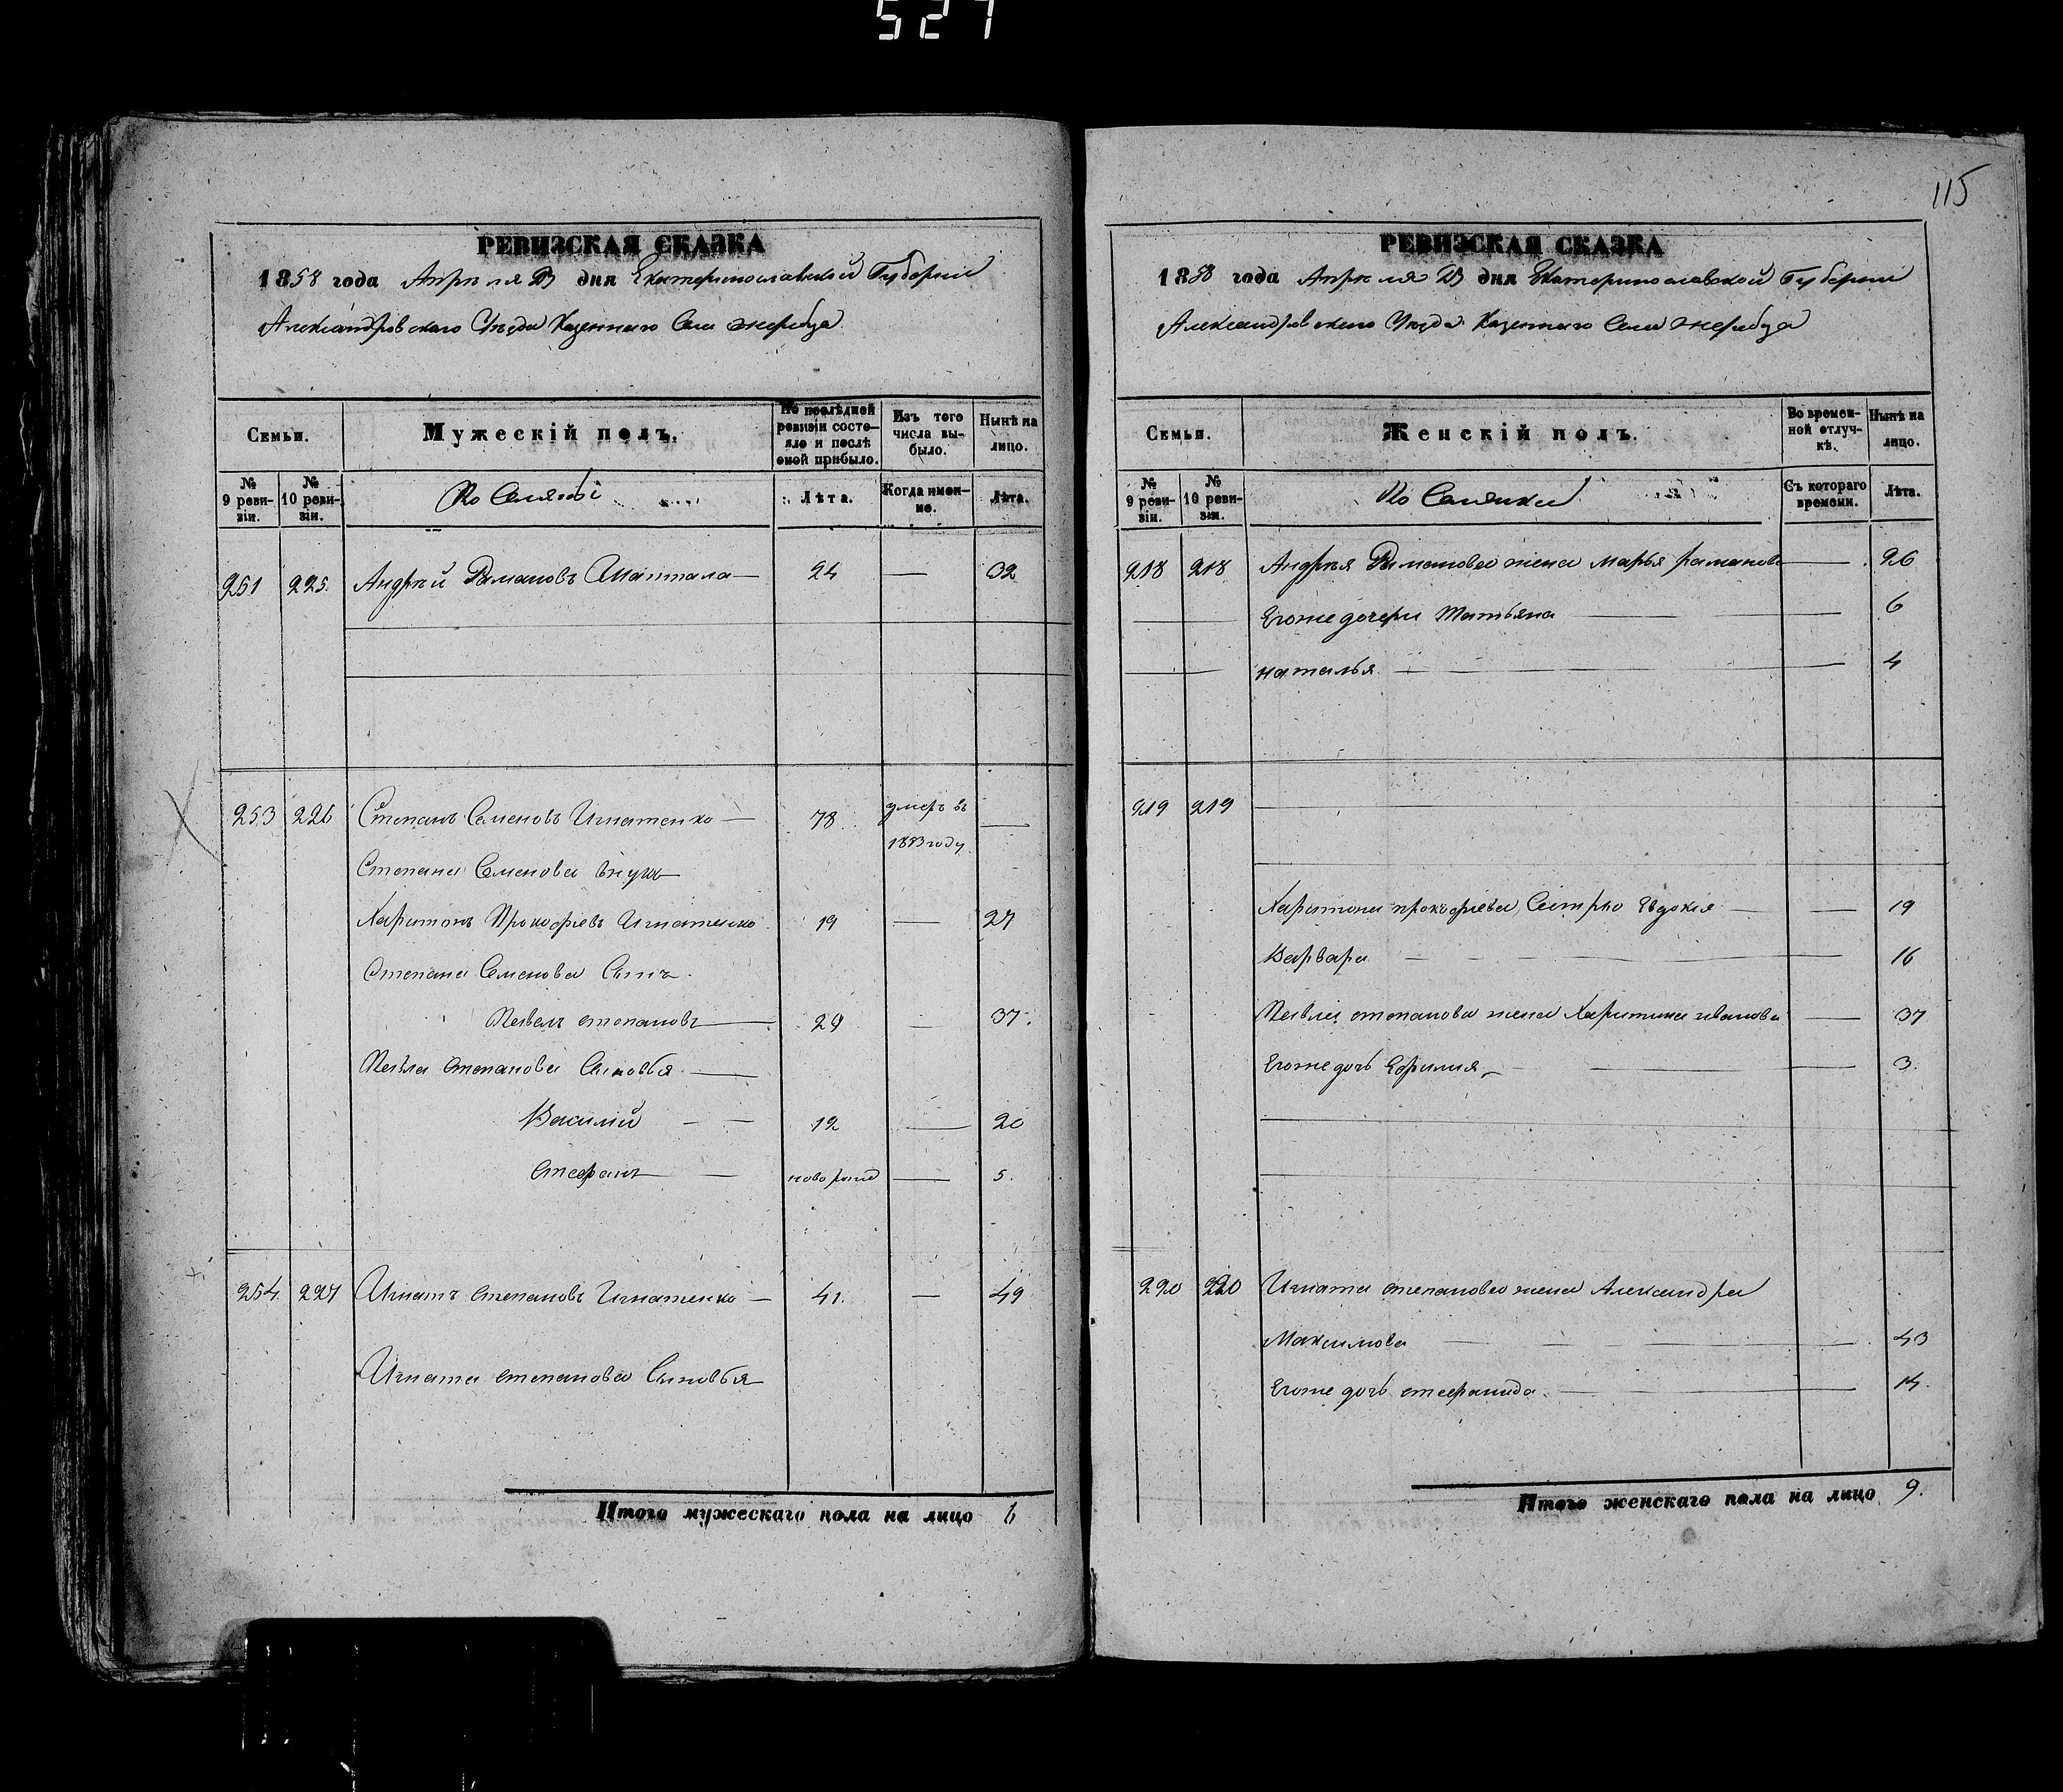 527
РЕВИЗСКАЯ СКАЗКА
1858 года Апреля дня Екатеринославской Губернии
Александровского Уезда Казенного Села Жеребца
Семьи.
Мужескій полъ.
По послѣдней ревизіи состояло и послѣ оной прибыло.
Изъ того числа выбыло.
Нынѣ на лицо.
№ 9 ревизіи.
№ 10 ревизіи.
Лѣта.
Когда именно.
Лѣта.
251 225. Андрѣй Романовъ 24 — 32
253 226 Степанъ Семеновъ Игнатенко — 78 умеръ въ —
году
Степана Семенова внукъ
Харитонъ Прокофьевъ Игнатенко 19 — 27
Степана Семенова Сынъ.
Павелъ степановъ 29 — 37.
Павла Степанова Сыновья
Василий — — 12 — 20
Стефанъ — новорожд — 5.
254. 227 Игнатъ Степановъ Игнатенко — 41. — 49
Игната степанова Сыновья
Итого мужескаго пола на лицо 6
115
РЕВИЗСКАЯ СКАЗКА
1858 года Апреля дня Екатеринославской Губернии
Александровского Уезда Казенного Села Жеребца
Семьи.
Женскій полъ.
Во временной отлучкѣ.
Нынѣ на лицо.
№ 9 ревизіи.
№ 10 ревизіи.
Съ котораго времени.
Лѣта.
218 218 Андрѣя Романова жена Марья романова — 26
Егоже дочери Татьяна — 6
наталья — 4
219 219
Харитона прокофьева Сестры Евдокия — 19
Варвара — 16
Павла степанова жена Харитина иванова — 37
Егоже дочь Ефимия — 3
220 220 Игната степанова жена Александра
Максимова — 43
Егоже дочь стефанида — 14.
Итого женскаго пола на лицо 9.